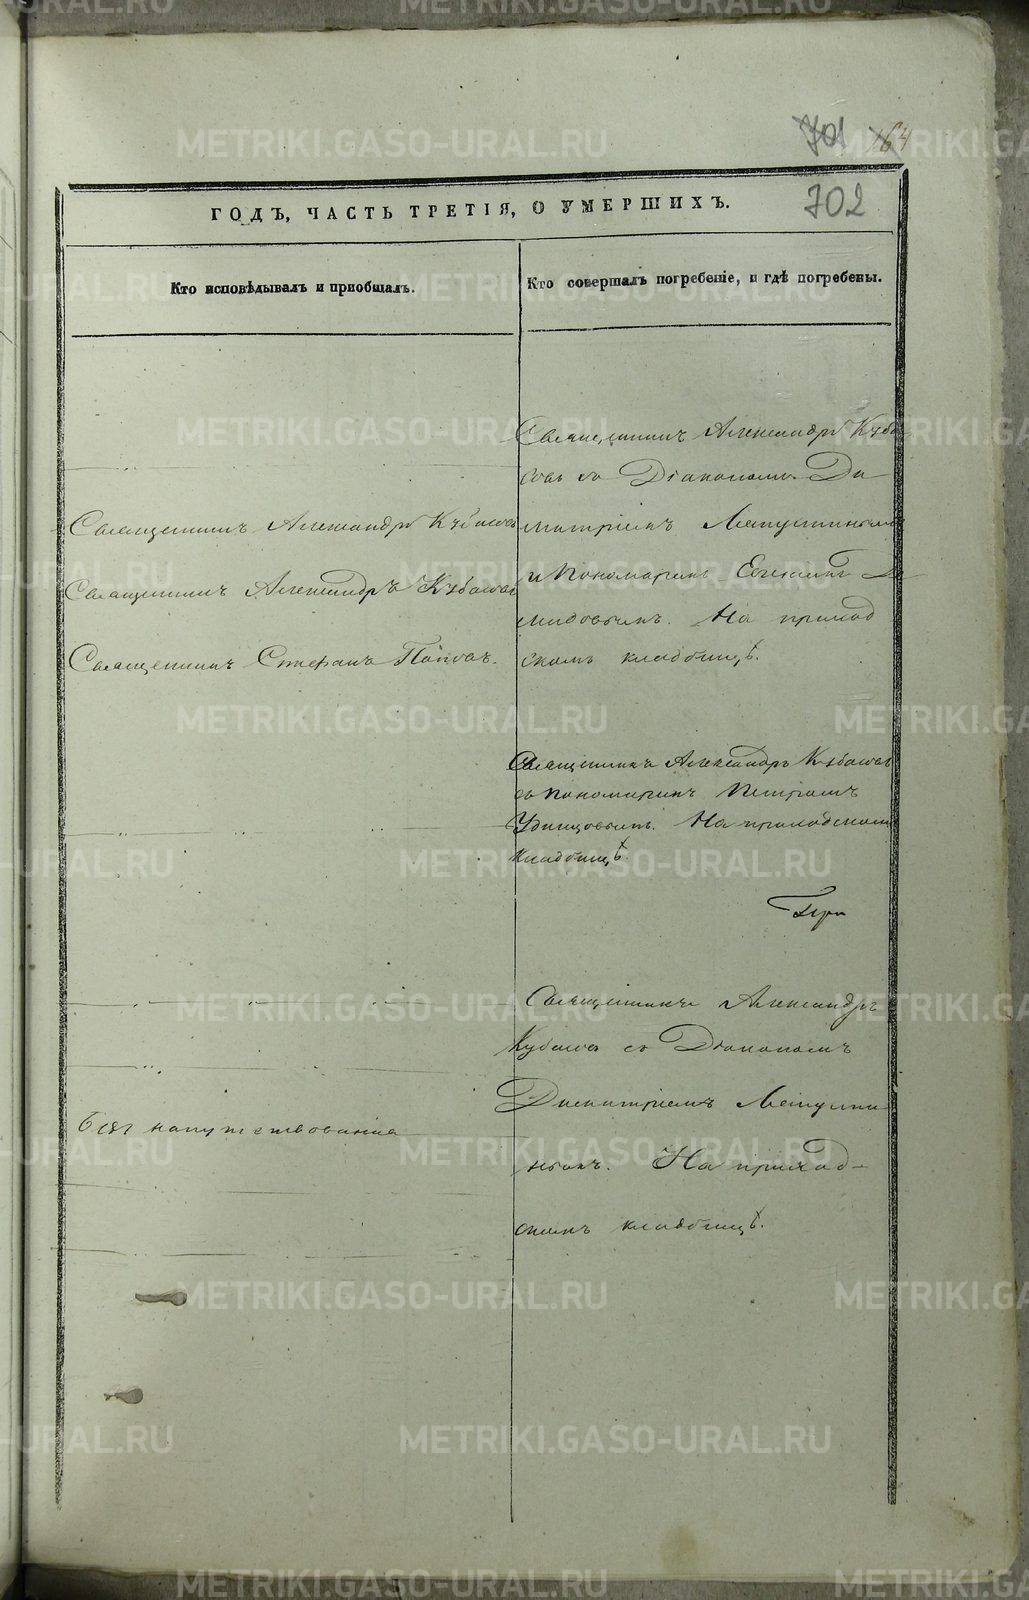 701 164
702
ГОДЪ, ЧАСТЬ ТРЕТІЯ, О УМЕРШИХЪ.
Кто исповѣдывалъ и пріобщалъ.
Кто совершалъ погребеніе, и гдѣ погребены.
Священникъ Александръ Кубасовъ
Священникъ Александръ Кубасовъ
Священникъ Стефанъ Поповъ.
Без напутствованія
Священникъ Александръ Куба
совъ со Діакономъ Ди
митріемъ
и Пономаремъ Де
мидовымъ. На приход
скомъ кладбищѣ.
Священникъ Александръ Кубасовъ
съ пономаремъ Петромъ
Удинцовымъ. На приходскомъ
кладбищѣ.
Священникъ Александръ
Кубасовъ со Діакономъ
Димитріемъ
На приход-
скомъ кладбищѣ.
METRIKI.GASO-URAL.RU